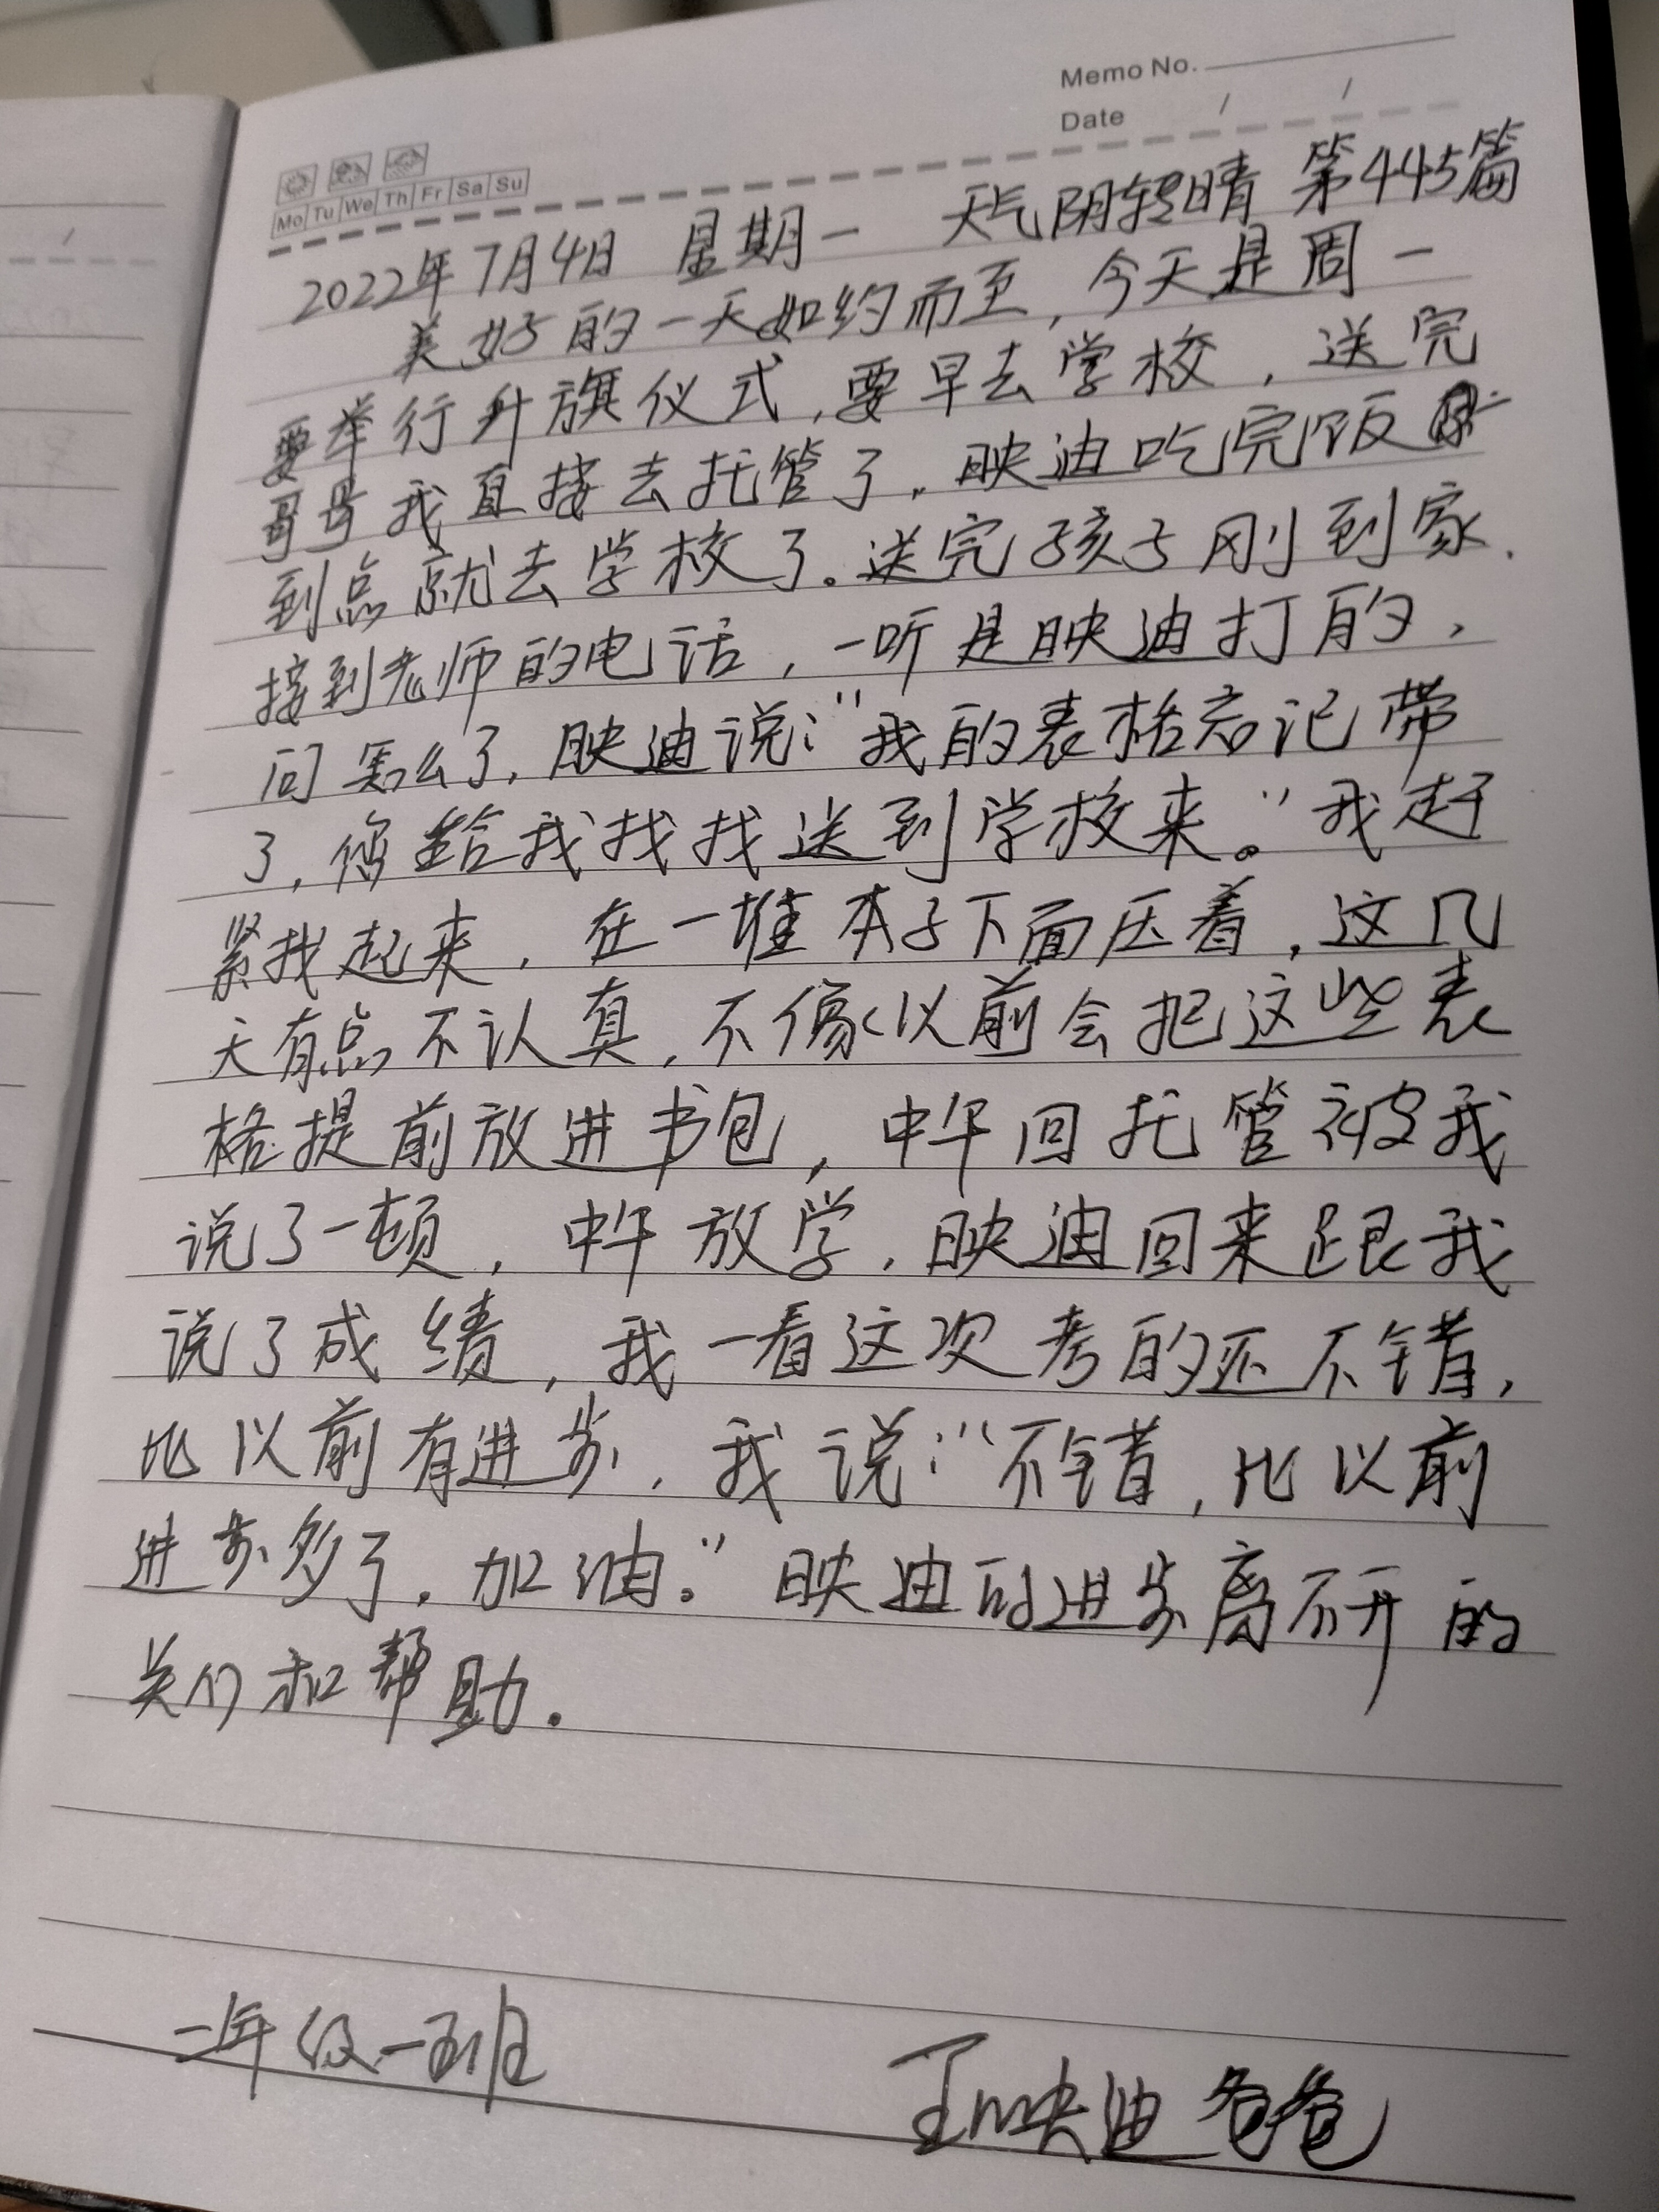 Memo No.
Date / /
Mo Tu We Th Fr Sa Su
2022年7月4日 星期一 天气阴转晴 第445篇
美好的一天如约而至，今天是周一
要举行升旗仪式，要早去学校，送完
哥哥我直接去托管了，映迪吃完饭
到点就去学校了。送完孩子刚到家.
接到老师的电话，一听是映迪打的，
问怎么了，映迪说：“我的表格忘记带
了，您给我找找送到学校来。”我赶
紧找起来，在一堆本子下面压着，这几
天有点不认真，不像以前会把这些表
格提前放进书包，中午回托管被我
说了一顿，中午放学，映迪回来跟我
说了成绩，我一看这次考的还不错，
比以前有进步，我说：“不错，比以前
进步多了，加油。”映迪的进步离不开的
关们和帮助.
二年级一班
王映迪爸爸